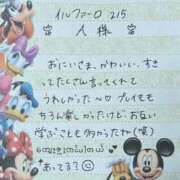 イルファーロ 215
人様
おにいさま、かわいい、すき
ってたくさん言ってくれて
うれしかった〜♡ プレイもも
ちろん楽しかったけど、お互い
学ぶことも多かったね(笑)
あってる?